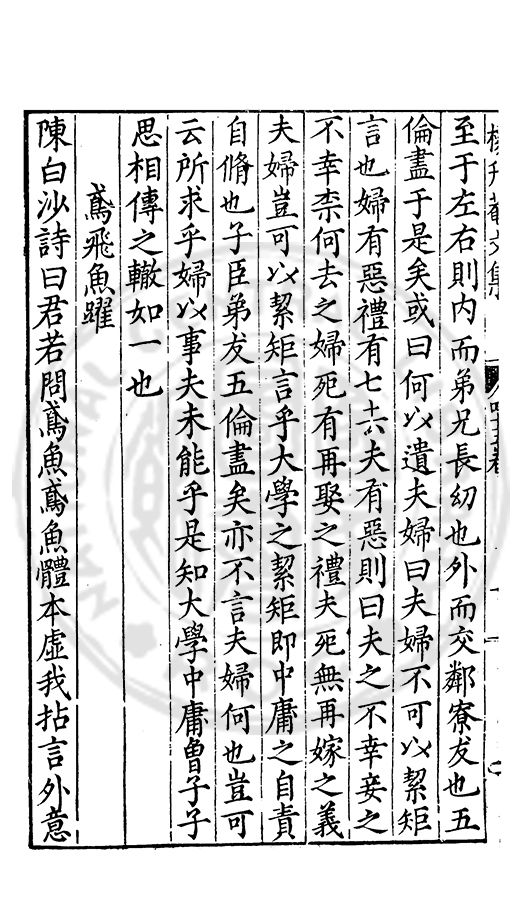 至于左右則内而弟兄長幼也外而交鄰寮友也五
倫盡于是矣或曰何以遺夫婦曰夫婦不可以絜矩
言也婦有惡禮有七去夫有惡則曰夫之不幸妾之
不幸柰何去之婦死有再娶之禮夫死無再嫁之義
夫婦豈可以絜矩言乎大學之絜矩即中庸之自責
自脩也子臣弟友五倫盡矣亦不言夫婦何也豈可
云所求乎婦以事夫未能乎是知大學中庸曾子子
思相傳之轍如一也
鳶飛魚躍
陳白沙詩曰君若問鳶魚鳶魚體本虛我拈言外意